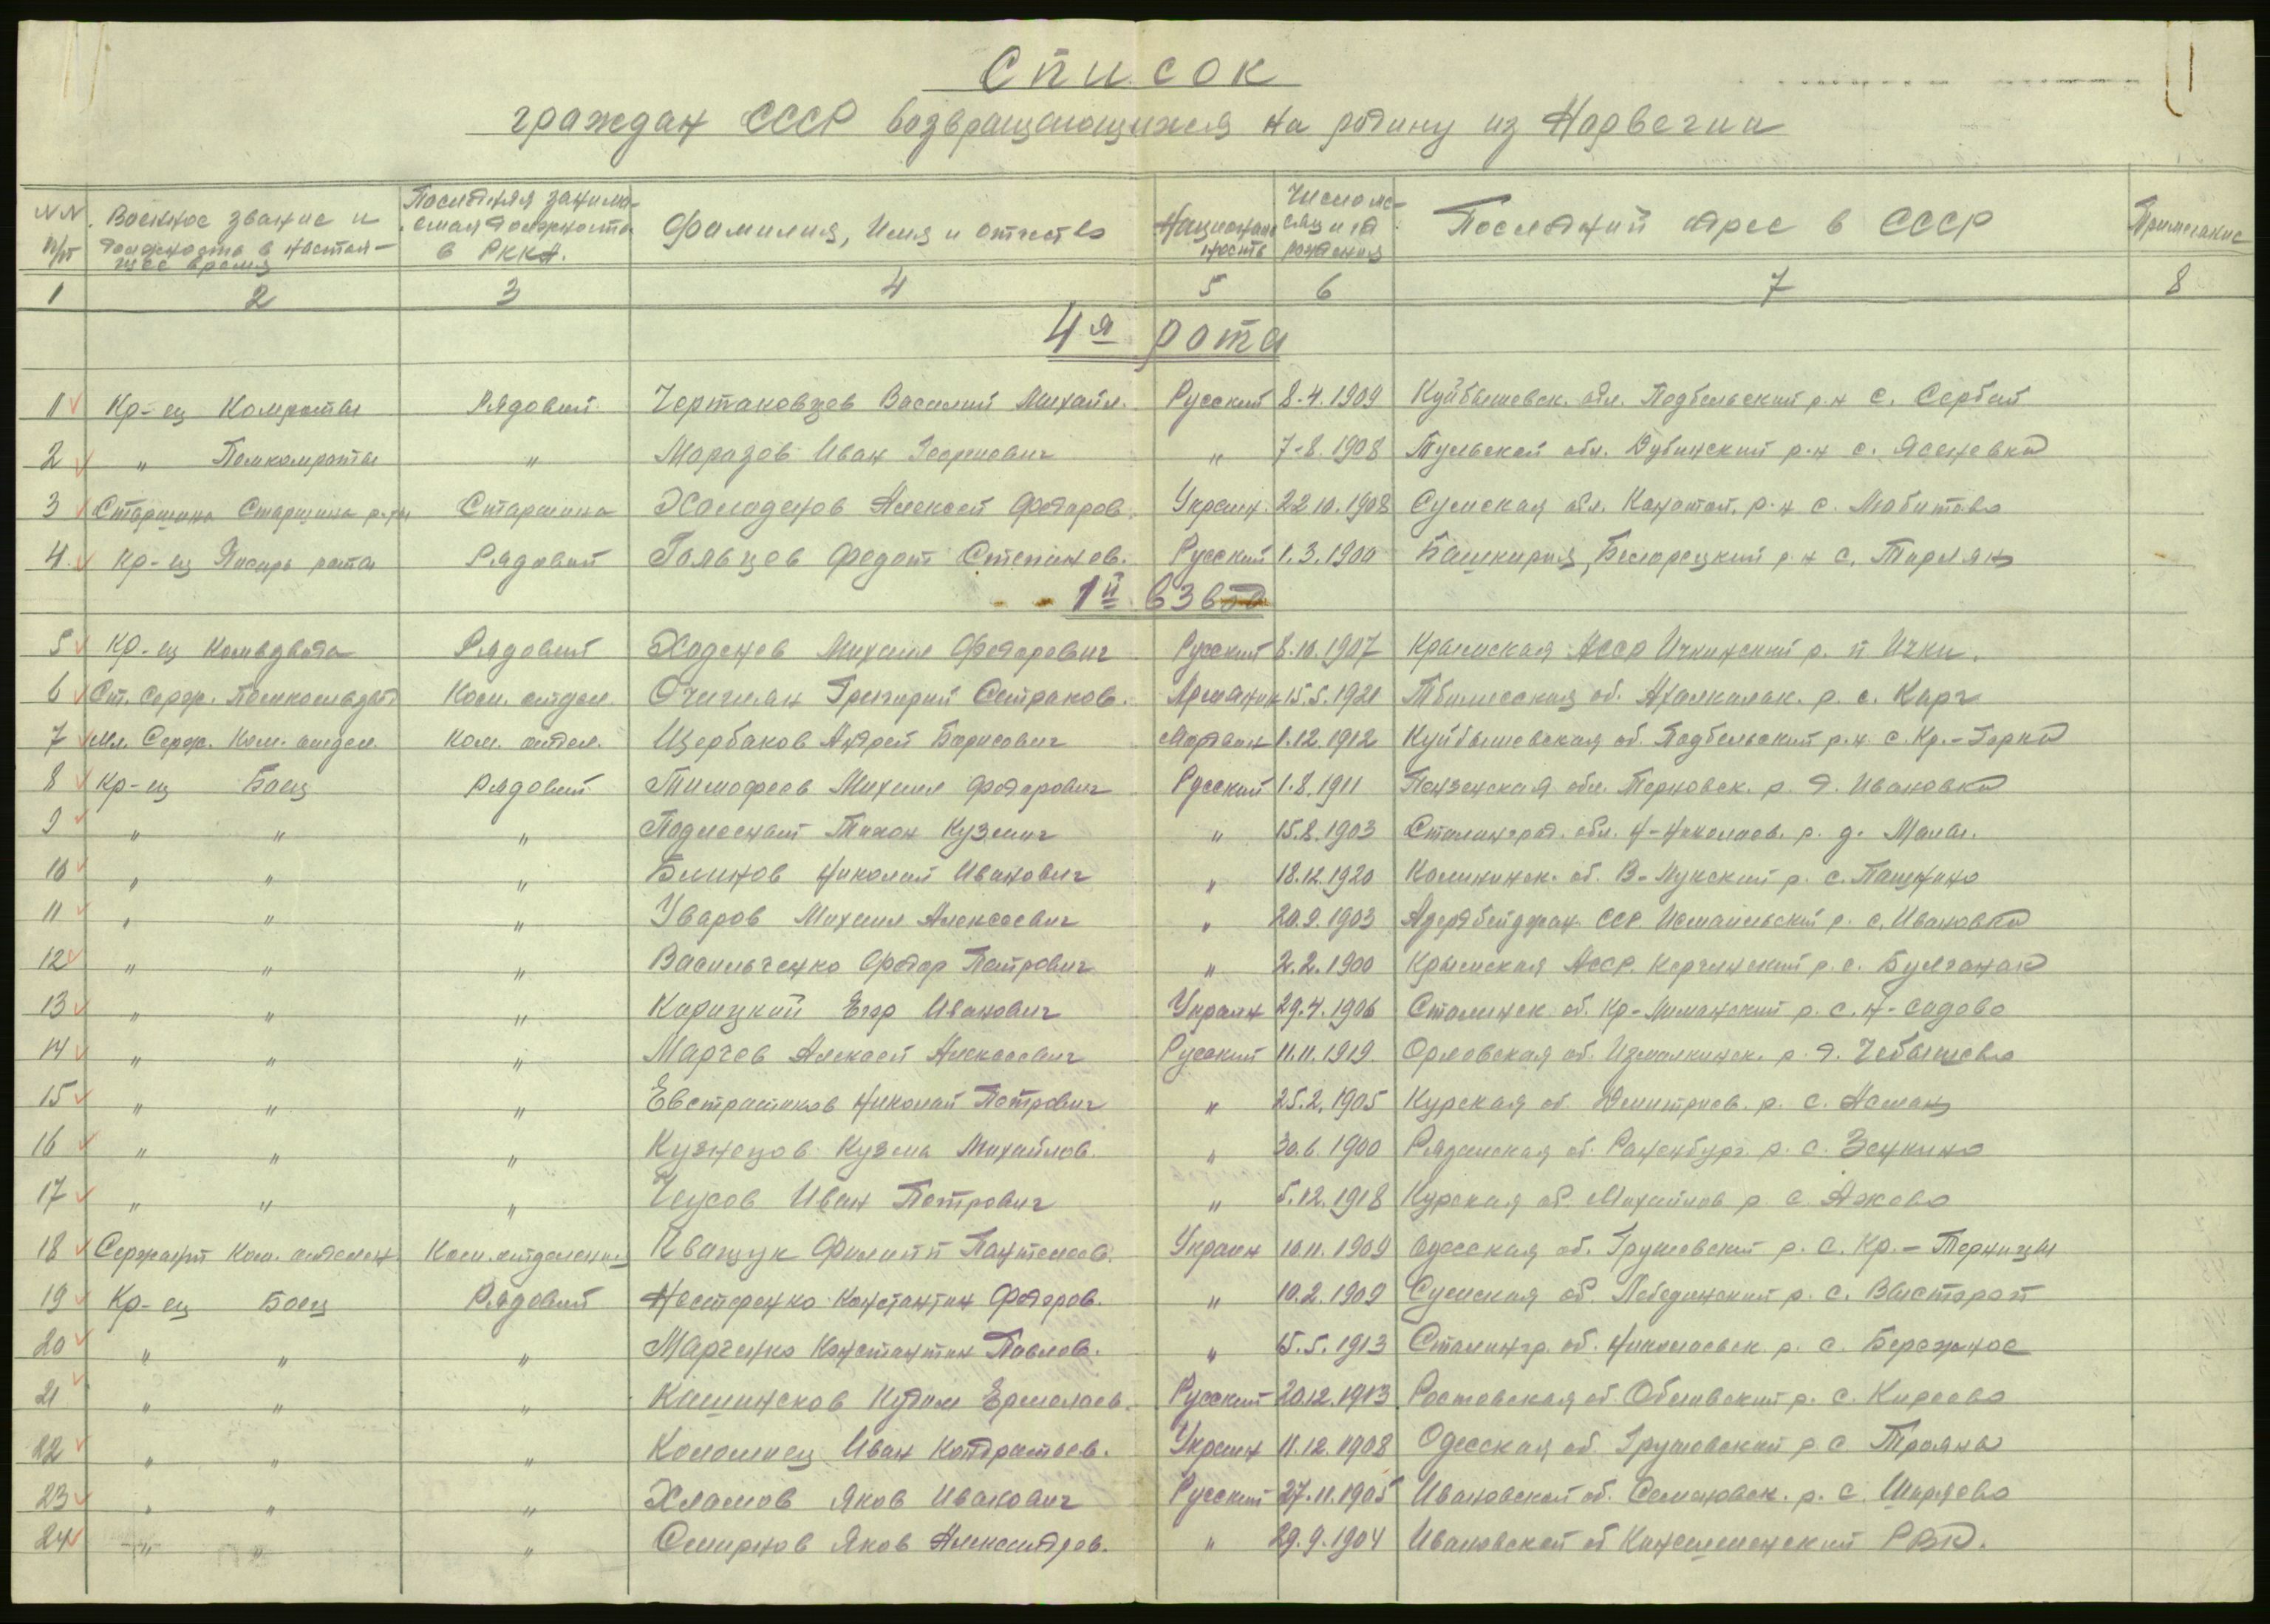 Список
граждан СССР возвращающихся на родину из Норвегии
№№ п/п | Военное звание и должность в настоящее время | Последняя занимаемая должность в РККА. | Фамилия, Имя и отчество | Национальность | Число месяц и год рождения | Последний адрес в СССР | Примечание
1 2 3 4 5 6 7 8
4я рота
1 Кр-ец Комроты Рядовой Чертаковцев Василий Михайл. Русский 8-4.1909 Куйбышевск. обл. Подбельский р-н с. Сербай
2 " Помкомроты " Морозов Иван Георгиевич " 7-8.1908 Тульской обл. Дубинский р-н с. Ясеневка
3 Старшина Старшина роты Старшина Холоденов Алексей Федоров. Украин. 22.10.1908 Сумская обл. Конотоп. р-н с. Любитово
4. Кр-ец Писарь роты Рядовой Гольцев Федот Степанов. Русский 1.3.1900 Башкирия, Белорецкий р-н с. Тирлян
1й взвод
5 Кр-ец Комвзвода Рядовой Ходенев Михаил Федорович Русский 8.10.1907 Крымская АССР Ичкинский р. п Ички.
6 Ст. Серж. Помкомвзвод Ком. отдел. Григорий Армянин 15.5.1921 Тбилисская об. Ахалкалак. р. с. Карч
7 Мл. Серж. Ком. отдел. Ком. отдел. Щербаков Андрей Борисович Мордвин 1.12.1912 Куйбышевская об. Подбельский р.н. с. Кр.-Горка
8 Кр-ец Боец Рядовой Тимофеев Михаил Федорович Русский 1.8.1911 Пензенская обл. р. д. Ивановка
9 " " " Тихон Кузмич " 15.8.1903 Сталинград. обл. Н-Николаев. р. д.
10 " " " Блинов Николай Иванович " 18.12.1920 Калининск. об. В-Лукский р. с. Пашнино
11 " " " Уваров Михаил Алексеевич " 20.9.1903 Азербейджан ССР. р. с. Ивановка
12 " " " Васильченко Федор Петрович " 2.2.1900 Крымская АССР. Керченский р. с. Булганак
13 " " " Карицкий Егор Иванович Украин 29.4.1906 Сталинск. об. Кр-Лиманский р. с. Н-садово
14 " " " Марчев Алексей Алексеевич Русский 11.11.1919. Орловская об. Измалкинск. р. д. Чебышево
15 " " " Николай Петрович " 25.2.1905 Курская об Дмитриев. р. с. Асмань
16 " " " Кузнецов Кузма Михайлов. " 30.6.1900 Рязанская об. Раненбург. р. с. Зенкино
17 " " " Чеусов Иван Петрович " 5.12.1918 Курская об. Михайлов р с. Ажово
18 Сержант Ком. отделен. Ком. отделения Иващук Филипп Пантелеев. Украин 10.11.1909 Одесская об. Грушевский р. с. Кр.-
19 Кр-ец Боец Рядовой Нестеренко Константин Федоров. " 10.2.1909 Сумская об. Лебединский р. с. Выстороп
20 " " " Марченко Константин Павлов. " 15.5.1913 Сталингр. об. Николаевск р. с. Бережное
21 " " " Ермолаев. Русский 20.12.1913 Ростовская об. Обливский р. с. Киреево
22 " " " Коломиец Иван Кондратьев. Украин 11.12.1908 Одесская об. Грушовский р с Трояны
23 " " " Хламов Яков Иванович Русский 27.11.1905 Ивановской об. Семеновск. р. с. Ширяево
24 " " " Смирнов Яков Александров. " 29.9.1904 Ивановской об Кинешменский РВК.